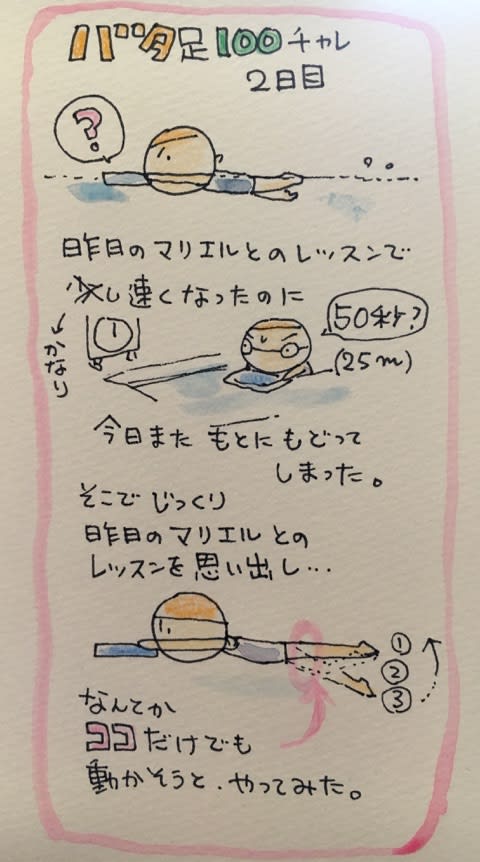 バタ足100チャレ
2日目
?
昨日のマリエルとのレッスンで
少し速くなったのに
←かなり
1
50秒?
(25m)
今日また もとに もどって
しまった。
そこで じっくり
昨日のマリエルとの
レッスンを思い出し…
①
②
③
なんてか
ココだけでも
動かそうと、やってみた。